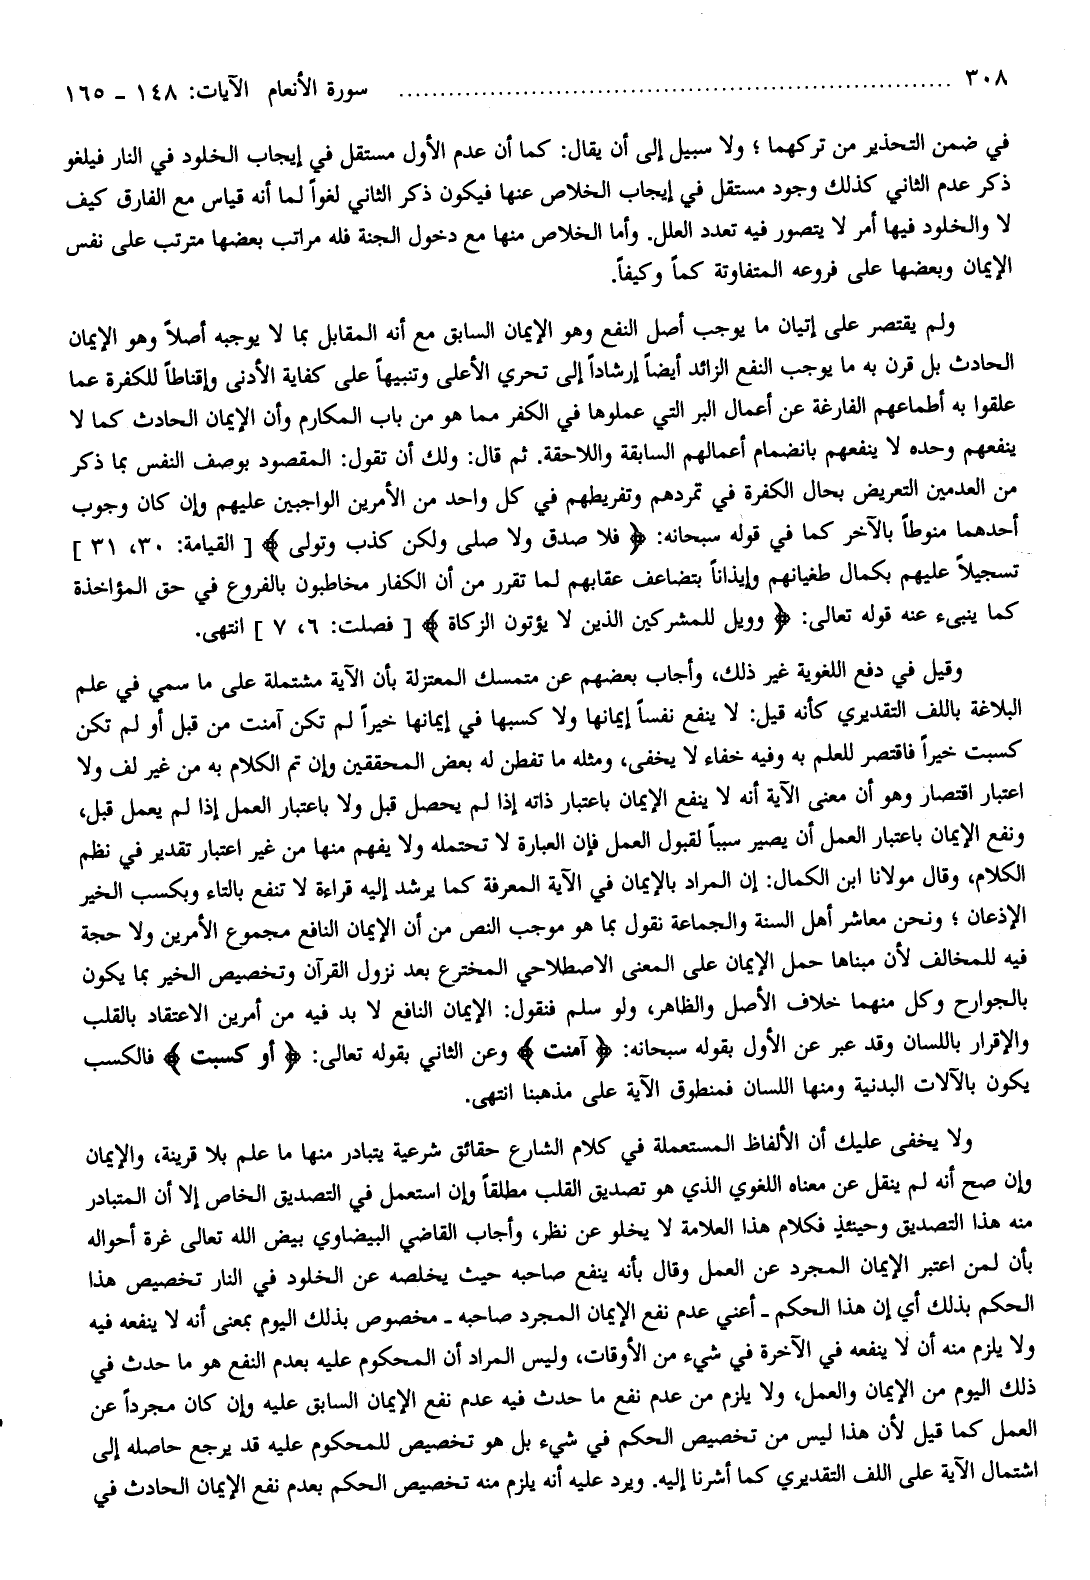 ٣٠٨ ........................................................................ سورة الأنعام الآيات: ١٤٨ - ١٦٥
في ضمن التحذير من تركهما ؛ ولا سبيل إلى أن يقال: كما أن عدم الأول مستقل في إيجاب الخلود في النار فيلغو
ذكر عدم الثاني كذلك وجود مستقل في إيجاب الخلاص عنها فيكون ذكر الثاني لغواً لما أنه قياس مع الفارق كيف
لا والخلود فيها أمر لا يتصور فيه تعدد العلل. وأما الخلاص منها مع دخول الجنة فله مراتب بعضها مترتب على نفس
الإيمان وبعضها على فروعه المتفاوتة كماً وكيفاً.
ولم يقتصر على إتيان ما يوجب أصل النفع وهو الإيمان السابق مع أنه المقابل بما لا يوجبه أصلاً وهو الإيمان
الحادث بل قرن به ما يوجب النفع الزائد أيضاً إرشاداً إلى تحري الأعلى وتنبيهاً على كفاية الأدنى وإقناطاً للكفرة عما
علقوا به أطماعهم الفارغة عن أعمال البر التي عملوها في الكفر مما هو من باب المكارم وأن الإيمان الحادث كما لا
ينفعهم وحده لا ينفعهم بانضمام أعمالهم السابقة واللاحقة. ثم قال: ولك أن تقول: المقصود بوصف النفس بما ذكر
من العدمين التعريض بحال الكفرة في تمردهم وتفريطهم في كل واحد من الأمرين الواجبين عليهم وإن كان وجوب
أحدهما منوطاً بالآخر كما في قوله سبحانه: ﴿ فلا صدق ولا صلى ولكن كذب وتولى ﴾ [ القيامة: ٣٠، ٣١ ]
تسجيلاً عليهم بكمال طغيانهم وإيذاناً بتضاعف عقابهم لما تقرر من أن الكفار مخاطبون بالفروع في حق المؤاخذة
كما ينبىء عنه قوله تعالى: ﴿ وويل للمشركين الذين لا يؤتون الزكاة ﴾ [ فصلت: ٦، ٧ ] انتهى.
وقيل في دفع اللغوية غير ذلك، وأجاب بعضهم عن متمسك المعتزلة بأن الآية مشتملة على ما سمي في علم
البلاغة باللف التقديري كأنه قيل: لا ينفع نفساً إيمانها ولا كسبها في إيمانها خيراً لم تكن آمنت من قبل أو لم تكن
كسبت خيراً فاقتصر للعلم به وفيه خفاء لا يخفى، ومثله ما تفطن له بعض المحققين وإن تم الكلام به من غير لف ولا
اعتبار اقتصار وهو أن معنى الآية أنه لا ينفع الإيمان باعتبار ذاته إذا لم يحصل قبل ولا باعتبار العمل إذا لم يعمل قبل،
ونفع الإيمان باعتبار العمل أن يصير سبباً لقبول العمل فإن العبارة لا تحتمله ولا يفهم منها من غير اعتبار تقدير في نظم
الكلام، وقال مولانا ابن الكمال: إن المراد بالإيمان في الآية المعرفة كما يرشد إليه قراءة لا تنفع بالتاء وبكسب الخير
الإذعان ؛ ونحن معاشر أهل السنة والجماعة نقول بما هو موجب النص من أن الإيمان النافع مجموع الأمرين ولا حجة
فيه للمخالف لأن مبناها حمل الإيمان على المعنى الاصطلاحي المخترع بعد نزول القرآن وتخصيص الخير بما يكون
بالجوارح وكل منهما خلاف الأصل والظاهر، ولو سلم فنقول: الإيمان النافع لا بد فيه من أمرين الاعتقاد بالقلب
والإقرار باللسان وقد عبر عن الأول بقوله سبحانه: ﴿ آمنت ﴾ وعن الثاني بقوله تعالى: ﴿ أو كسبت ﴾ فالكسب
يكون بالآلات البدنية ومنها اللسان فمنطوق الآية على مذهبنا انتهى.
ولا يخفى عليك أن الألفاظ المستعملة في كلام الشارع حقائق شرعية يتبادر منها ما علم بلا قرينة، والإيمان
وإن صح أنه لم ينقل عن معناه اللغوي الذي هو تصديق القلب مطلقاً وإن استعمل في التصديق الخاص إلا أن المتبادر
منه هذا التصديق وحينئذٍ فكلام هذا العلامة لا يخلو عن نظر، وأجاب القاضي البيضاوي بيض الله تعالى غرة أحواله
بأن لمن اعتبر الإيمان المجرد عن العمل وقال بأنه ينفع صاحبه حيث يخلصه عن الخلود في النار تخصيص هذا
الحكم بذلك أي إن هذا الحكم - أعني عدم نفع الإيمان المجرد صاحبه - مخصوص بذلك اليوم بمعنى أنه لا ينفعه فيه
ولا يلزم منه أن لا ينفعه في الآخرة في شيء من الأوقات، وليس المراد أن المحكوم عليه بعدم النفع هو ما حدث في
ذلك اليوم من الإيمان والعمل، ولا يلزم من عدم نفع ما حدث فيه عدم نفع الإيمان السابق عليه وإن كان مجرداً عن
العمل كما قيل لأن هذا ليس من تخصيص الحكم في شيء بل هو تخصيص للمحكوم عليه قد يرجع حاصله إلى
اشتمال الآية على اللف التقديري كما أشرنا إليه. ويرد عليه أنه يلزم منه تخصيص الحكم بعدم نفع الإيمان الحادث في